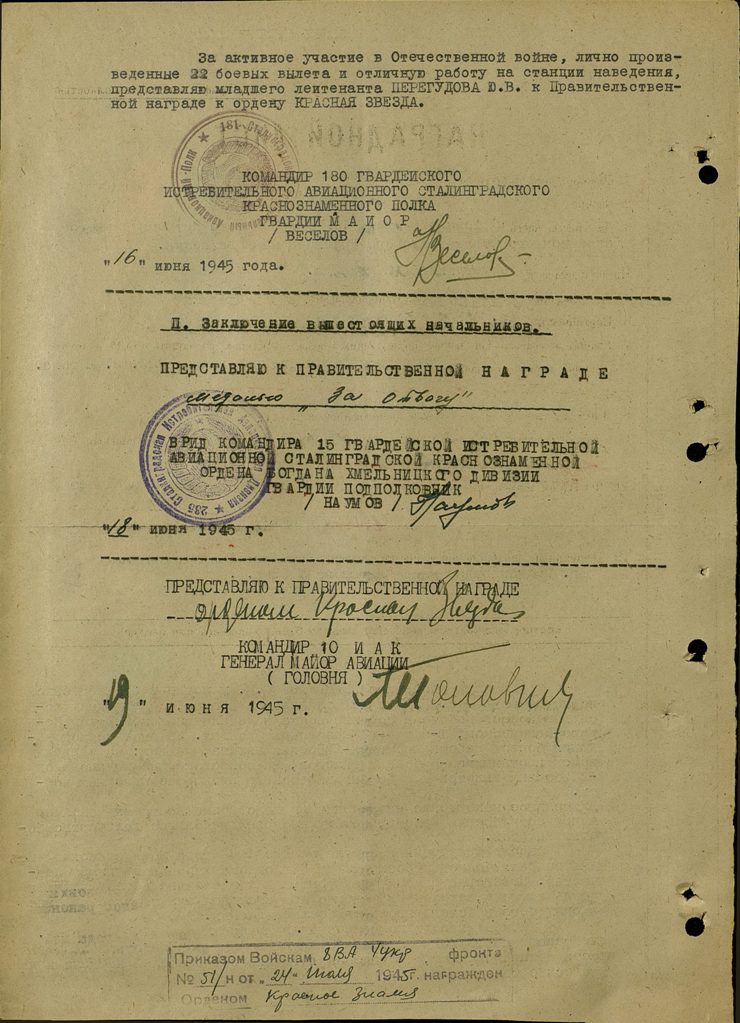 За активное участие в Отечественной войне, лично произ-
веденные 22 боевых вылета и отличную работу на станции наведения,
представляю младшего лейтенанта ПЕРЕГУДОВА Ю.В. к Правительствен-
ной награде к ордену КРАСНАЯ ЗВЕЗДА.
КОМАНДИР 180 ГВАРДЕЙСКОГО
ИСТРЕБИТЕЛЬНОГО АВИАЦИОННОГО СТАЛИНГРАДСКОГО
КРАСНОЗНАМЕННОГО ПОЛКА
ГВАРДИИ М А Й О Р
/ ВЕСЕЛОВ / Веселов
"16" июня 1945 года.
П. Заключение вышестоящих начальников.
ПРЕДСТАВЛЯЮ К ПРАВИТЕЛЬСТВЕННОЙ Н А Г Р А Д Е
медалью „За отвагу"
ВРИД КОМАНДИРА 15 ГВАРДЕЙСКОЙ ИСТРЕБИТЕЛЬНОЙ
АВИАЦИОННОЙ СТАЛИНГРАДСКОЙ КРАСНОЗНАМЕННОЙ
ОРДЕНА БОГДАНА ХМЕЛЬНИЦКОГО ДИВИЗИИ
ГВАРДИИ ПОДПОЛКОВНИК
/ НАУМОВ / Наумов
"18" июня 1945 г.
ПРЕДСТАВЛЯЮ К ПРАВИТЕЛЬСТВЕННОЙ НАГРАДЕ
орденом Красная Звезда
КОМАНДИР 10 И А К
ГЕНЕРАЛ МАЙОР АВИАЦИИ
( ГОЛОВНЯ )
"19" и ю н я 1945 г.
Приказом Войскам 8ВА 4укр фронта
№ 51/н от „24" июля 1945г. награжден
Орденом Красное Знамя